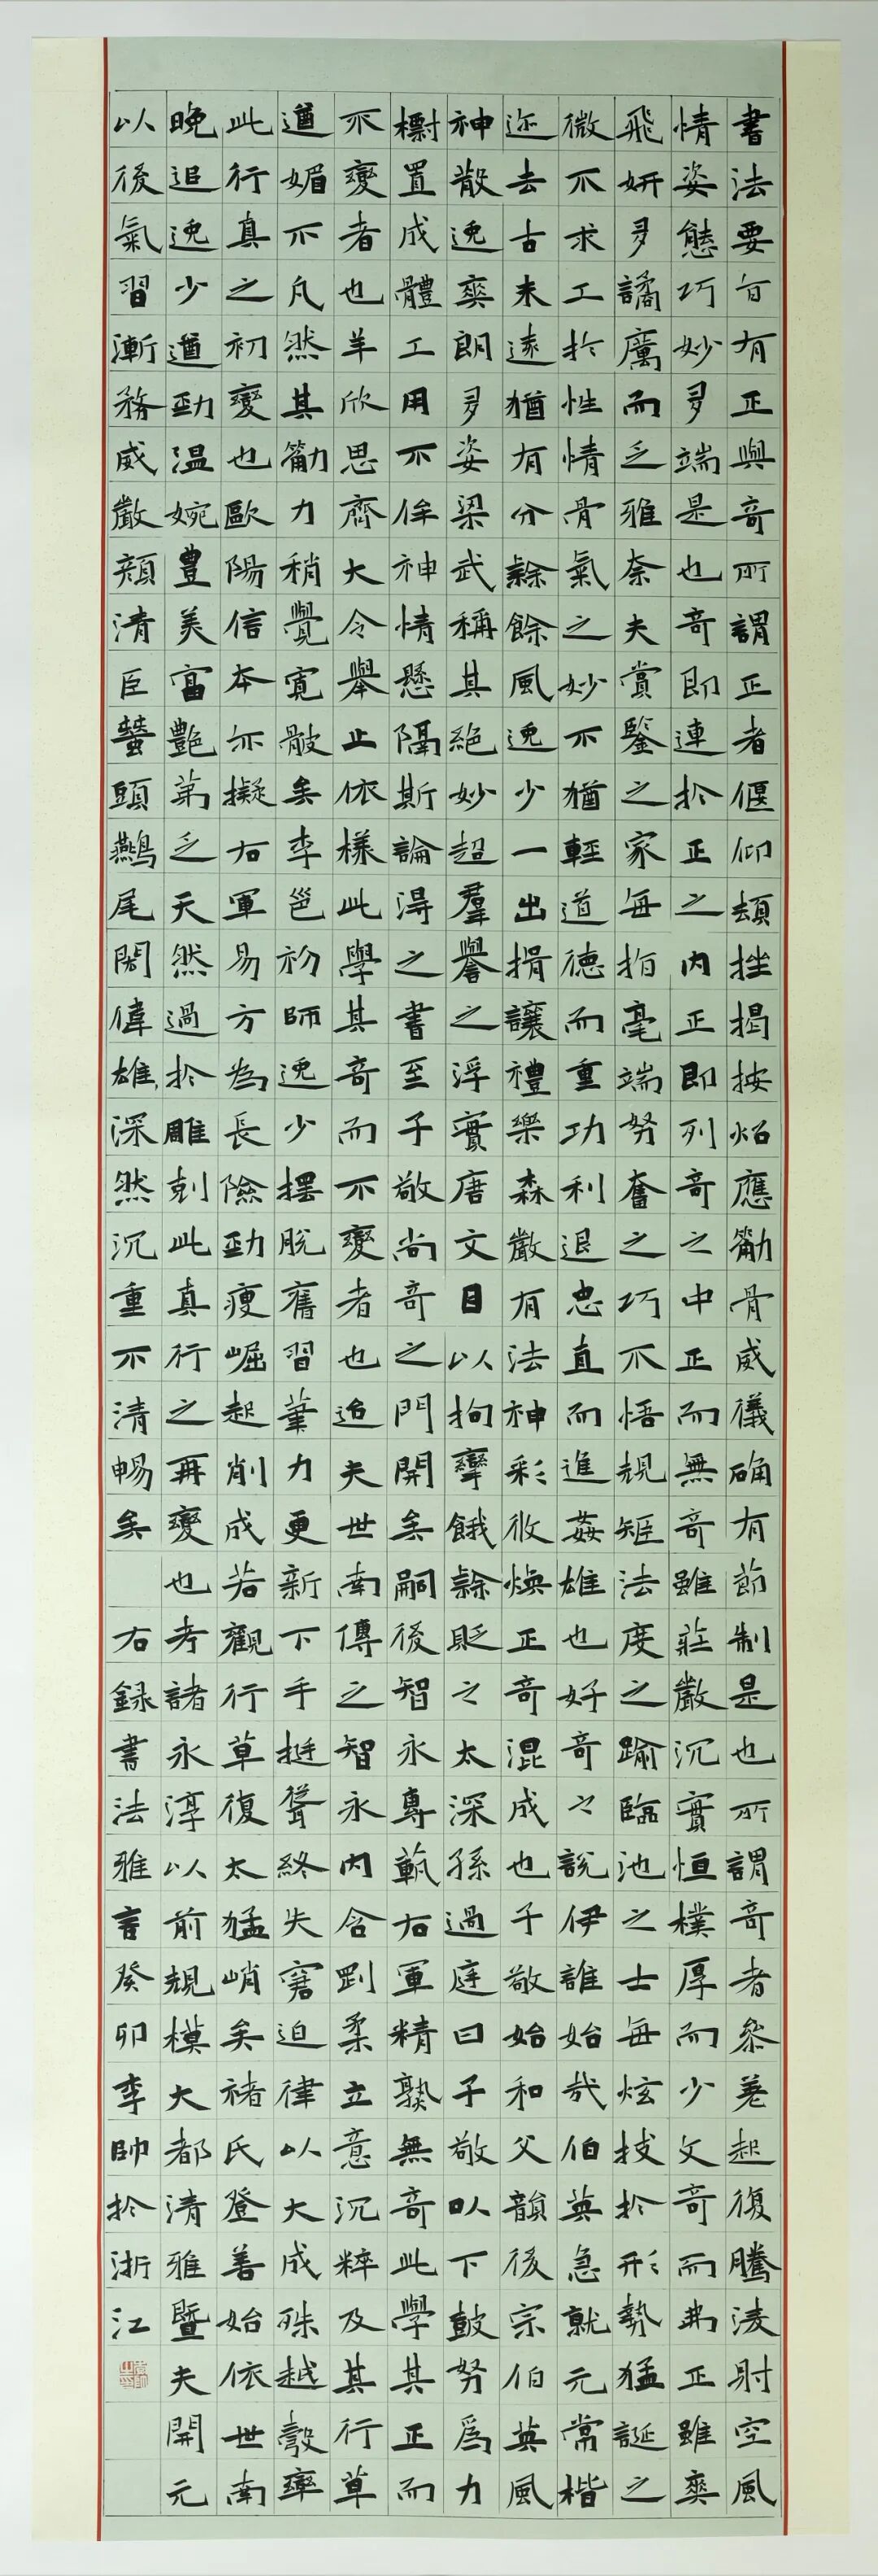 書法要旨有正與奇所謂正者偃仰頓挫揭按炤應觔骨威儀确有節制是也所謂奇者叅差起復騰凌射空風
情姿態巧妙多端是也奇即連於正之內正即列奇之中正而無奇雖莊嚴沉實恒樸厚而少文奇而弗正雖爽
飛妍多譎厲而乏雅奈夫賞鑒之家每指毫端努奮之巧不悟規矩法度之踰臨池之士每炫技於形勢猛誕之
微不求工於性情骨氣之妙不猶輕道德而重功利退忠直而進姦雄也好奇之說伊誰始哉伯英急就元常楷
迹去古未遠猶有分隸餘風逸少一出揖讓禮樂森嚴有法神彩攸煥正奇混成也子敬始和父韻後宗伯英風
神散逸爽朗多姿梁武稱其絕妙超羣譽之浮實唐文目以拘攣餓隸貶之太深孫過庭曰子敬㠯下鼓努爲力
標置成體工用不侔神情懸隔斯論得之書至子敬尚奇之門開矣嗣後智永專執右軍精熟無奇此學其正而
不變者也羊欣思齊大令舉止依樣此學其奇而不變者也迨夫世南傳之智永內含剛柔立意沉粹及其行草
遒媚不凡然其觔力稍覺寬骳矣李邕初師逸少擺脫舊習筆力更新下手挺聳終失窘迫律以大成殊越彀率
此行真之初變也歐陽信本亦擬右軍易方為長險勁瘦崛起削成若觀行草復太猛峭矣褚氏登善始依世南
晚追逸少遒勁温婉豐美富艷第乏天然過於雕刻此真行之再變也考諸永淳以前規模大都清雅暨夫開元
以後氣習漸務威嚴顏清臣蠶頭鷰尾閎偉雄深然沉重不清暢矣 右録書法雅言癸卯李帥於浙江